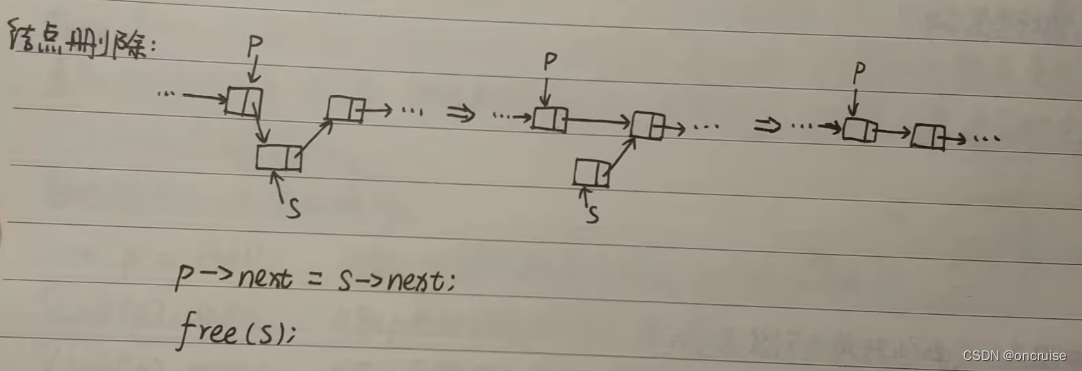 结点删除:
P
P
P
... ⇒ ... ... ⇒ ... ...
S
S
p->next = s->next;
free(s);
CSDN @oncruise